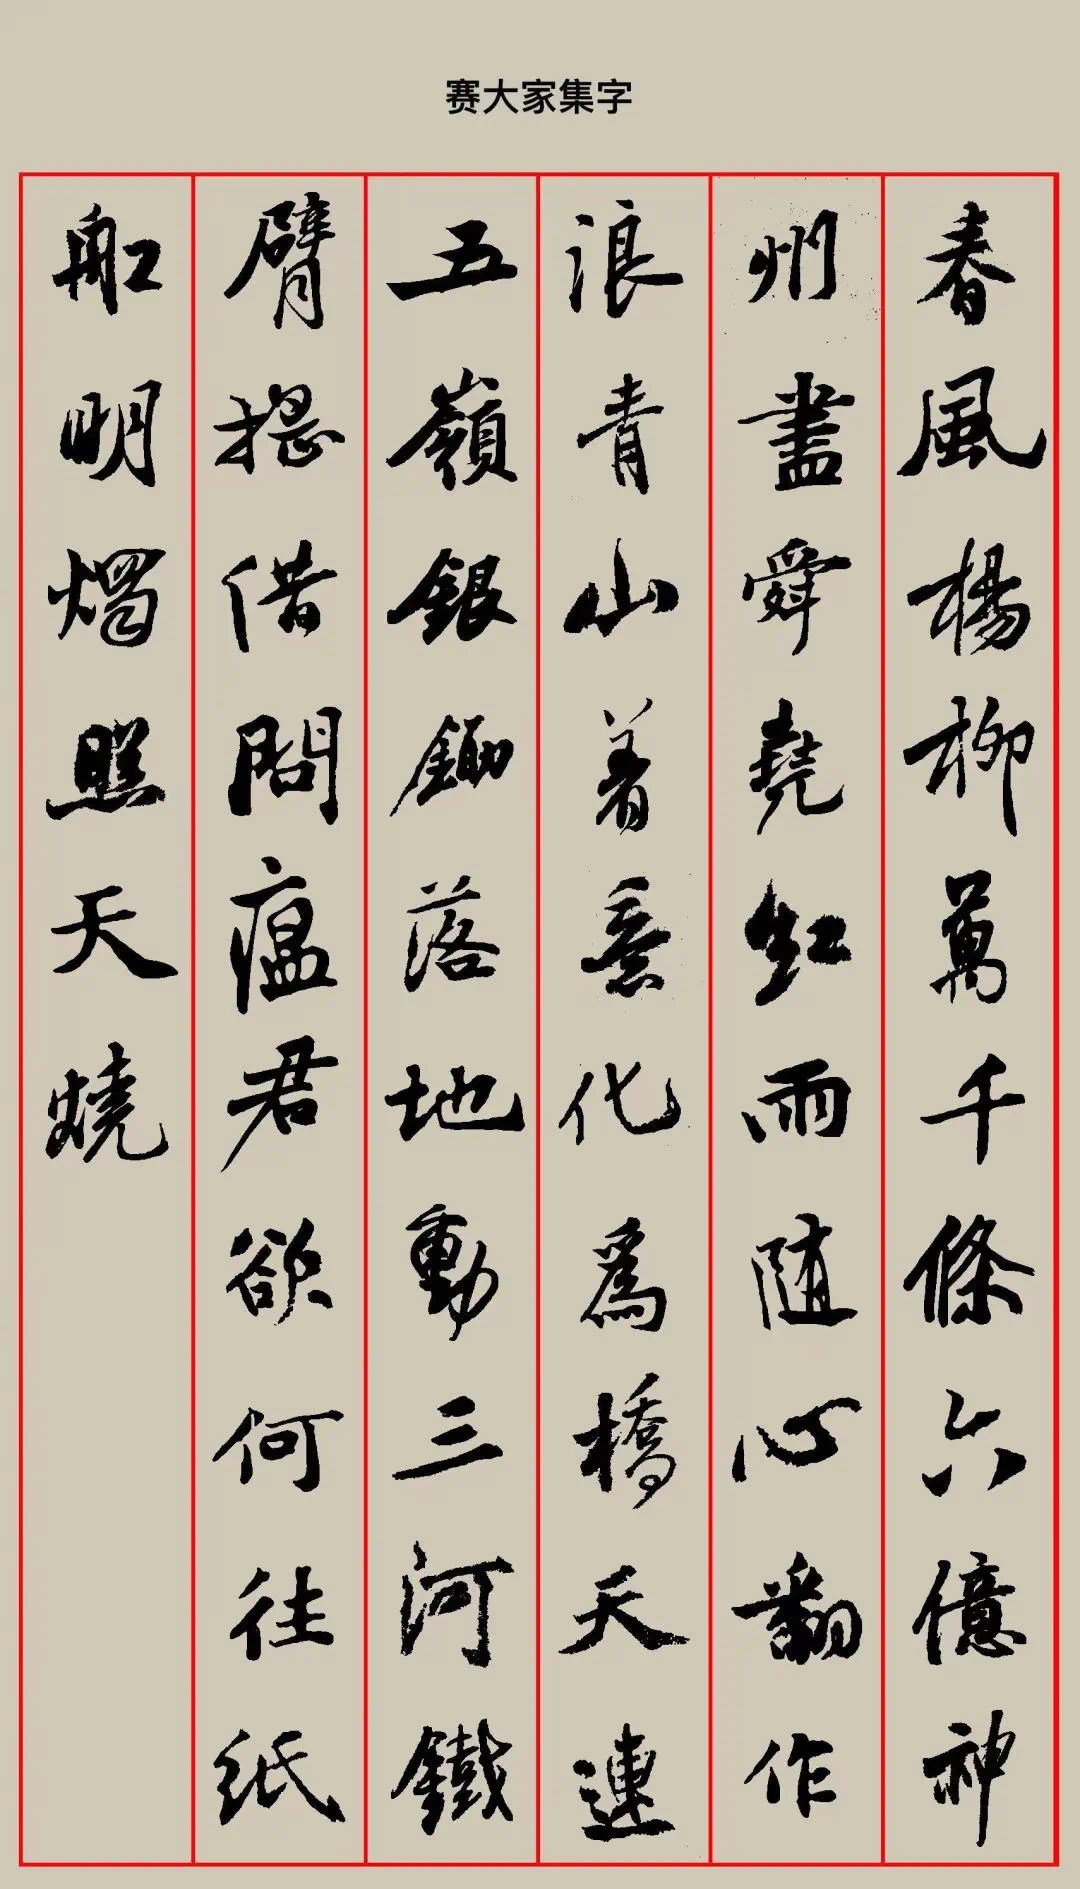 赛大家集字
春風楊柳萬千條六億神
州盡舜堯紅雨随心翻作
浪青山着意化為橋天連
五嶺銀鋤落地動三河鐵
臂摇借問瘟君欲何往纸
船明燭照天燒